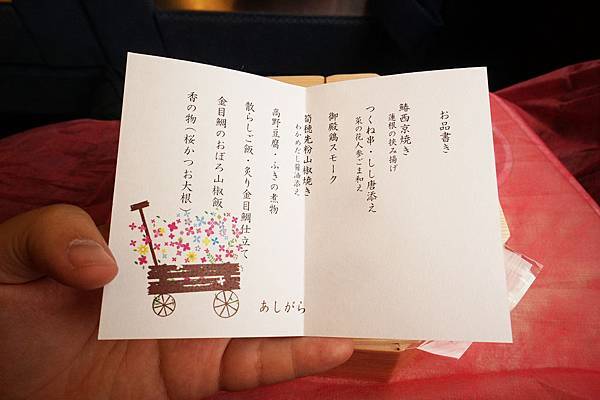 お品書き
鰆西京焼き
蓮根の挟み揚げ
つくね串・しし唐添え
菜の花人参ごま和え
御殿鶏スモーク
筍穂先粉山椒焼き
わかめだし醤油添え
高野豆腐・ふきの煮物
散らしご飯・炙り金目鯛仕立て
金目鯛のおぼろ山椒飯
香の物(桜かつお大根)
あしがら